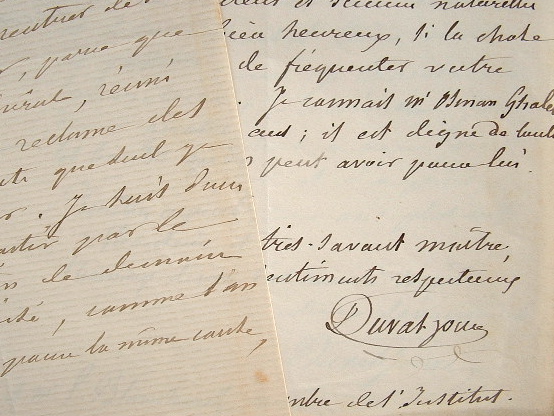 , parce que
réuni
réclame des
que seul je
. Je suis d'un
partir par le
de demain
, comme l'an
pour la même cause,
et science naturelle
bien heureux, si la chose
de fréquenter votre
. Je connais Mr Osman Ghaleb
; il est digne de toute
peut avoir pour lui.
très-savant maître,
sentiments respectueux
Duval-Jouve
membre de l'Institut.